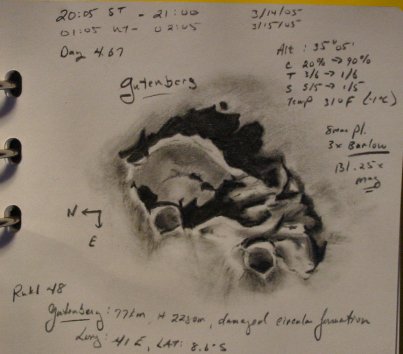 20:05 ST - 21:00 3/14/05
01:05 UT - 02:05 3/15/05
Day 4.67
Alt: 35° 05'
C 20% → 90%
T 3/6 → 1/6
S 5/5 → 1/5
Temp 31°F (-1°C)
Gutenberg
8mm Pl.
3x Barlow
131.25x
mag
N
E
Rukl 48
Gutenberg: 77km, damaged circular formation
Long: 41 E, LAT: 8.6°S